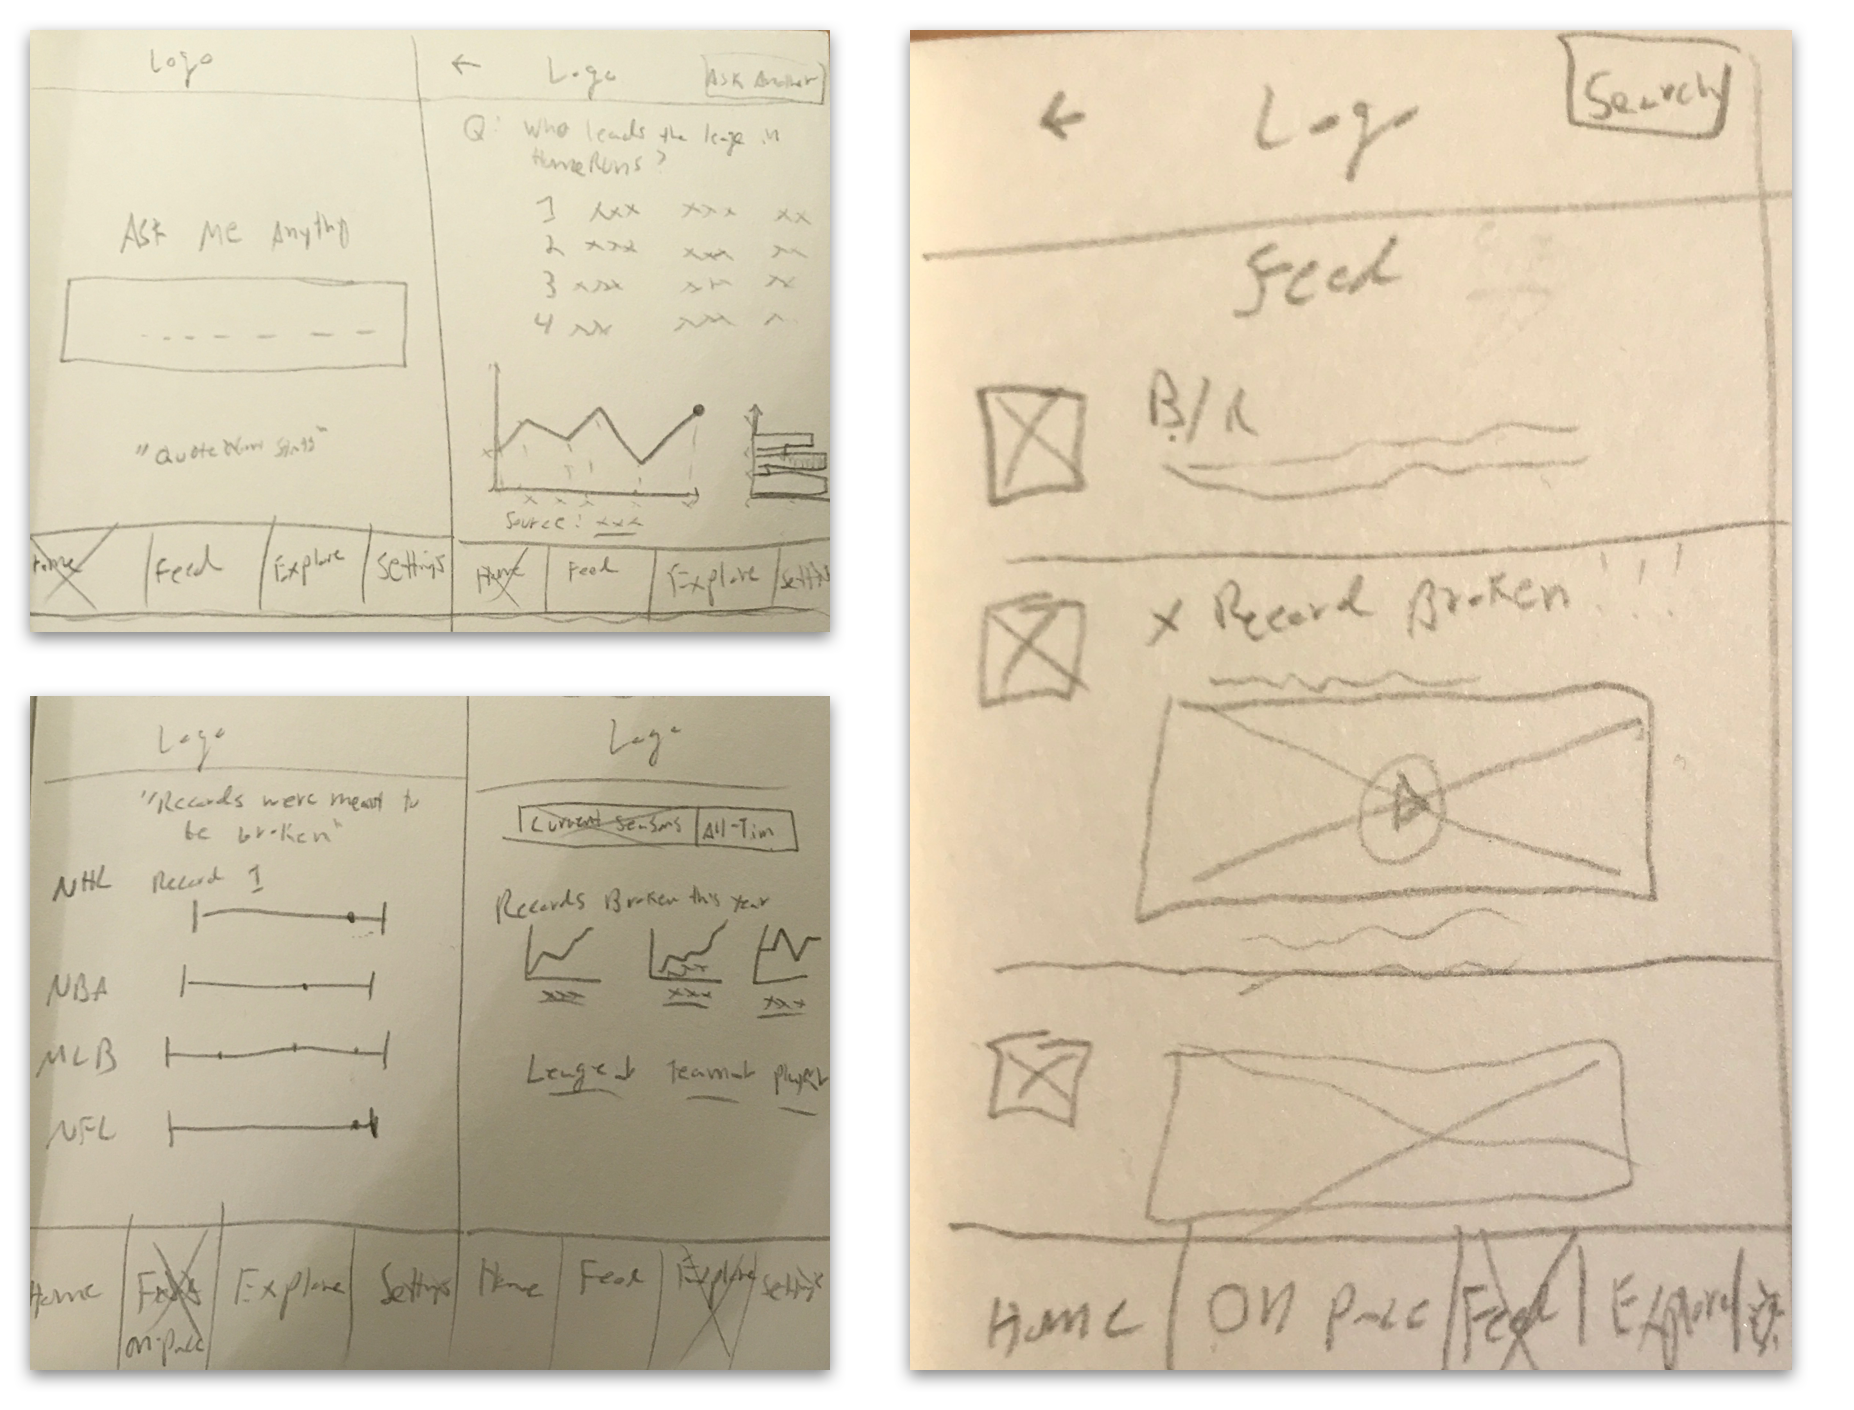 Logo
Ask Me Anyth
Home
Feed
Explore
Settings
←
Logo
Ask Another
Q: Who leads the leage in
HomeRuns?
1 xxx xxx xx
2 xxx xxx xx
3 xxx xxx xx
4 xx xxx x
Source: xxx
Home
Feed
Explore
Settin
Logo
"Records were meant to
be broken"
NHL Record 1
NBA
MLB
NFL
Home
Explore
Settings
On-Pace
Logo
Current Seasons
All-Tim
Records Broken this Year
xxx xxx xxx
Home
Feed
Explore
Settings
←
Logo
Search
Feed
B/R
X Record Broken!!!
Home
On Pace
Feed
Explore